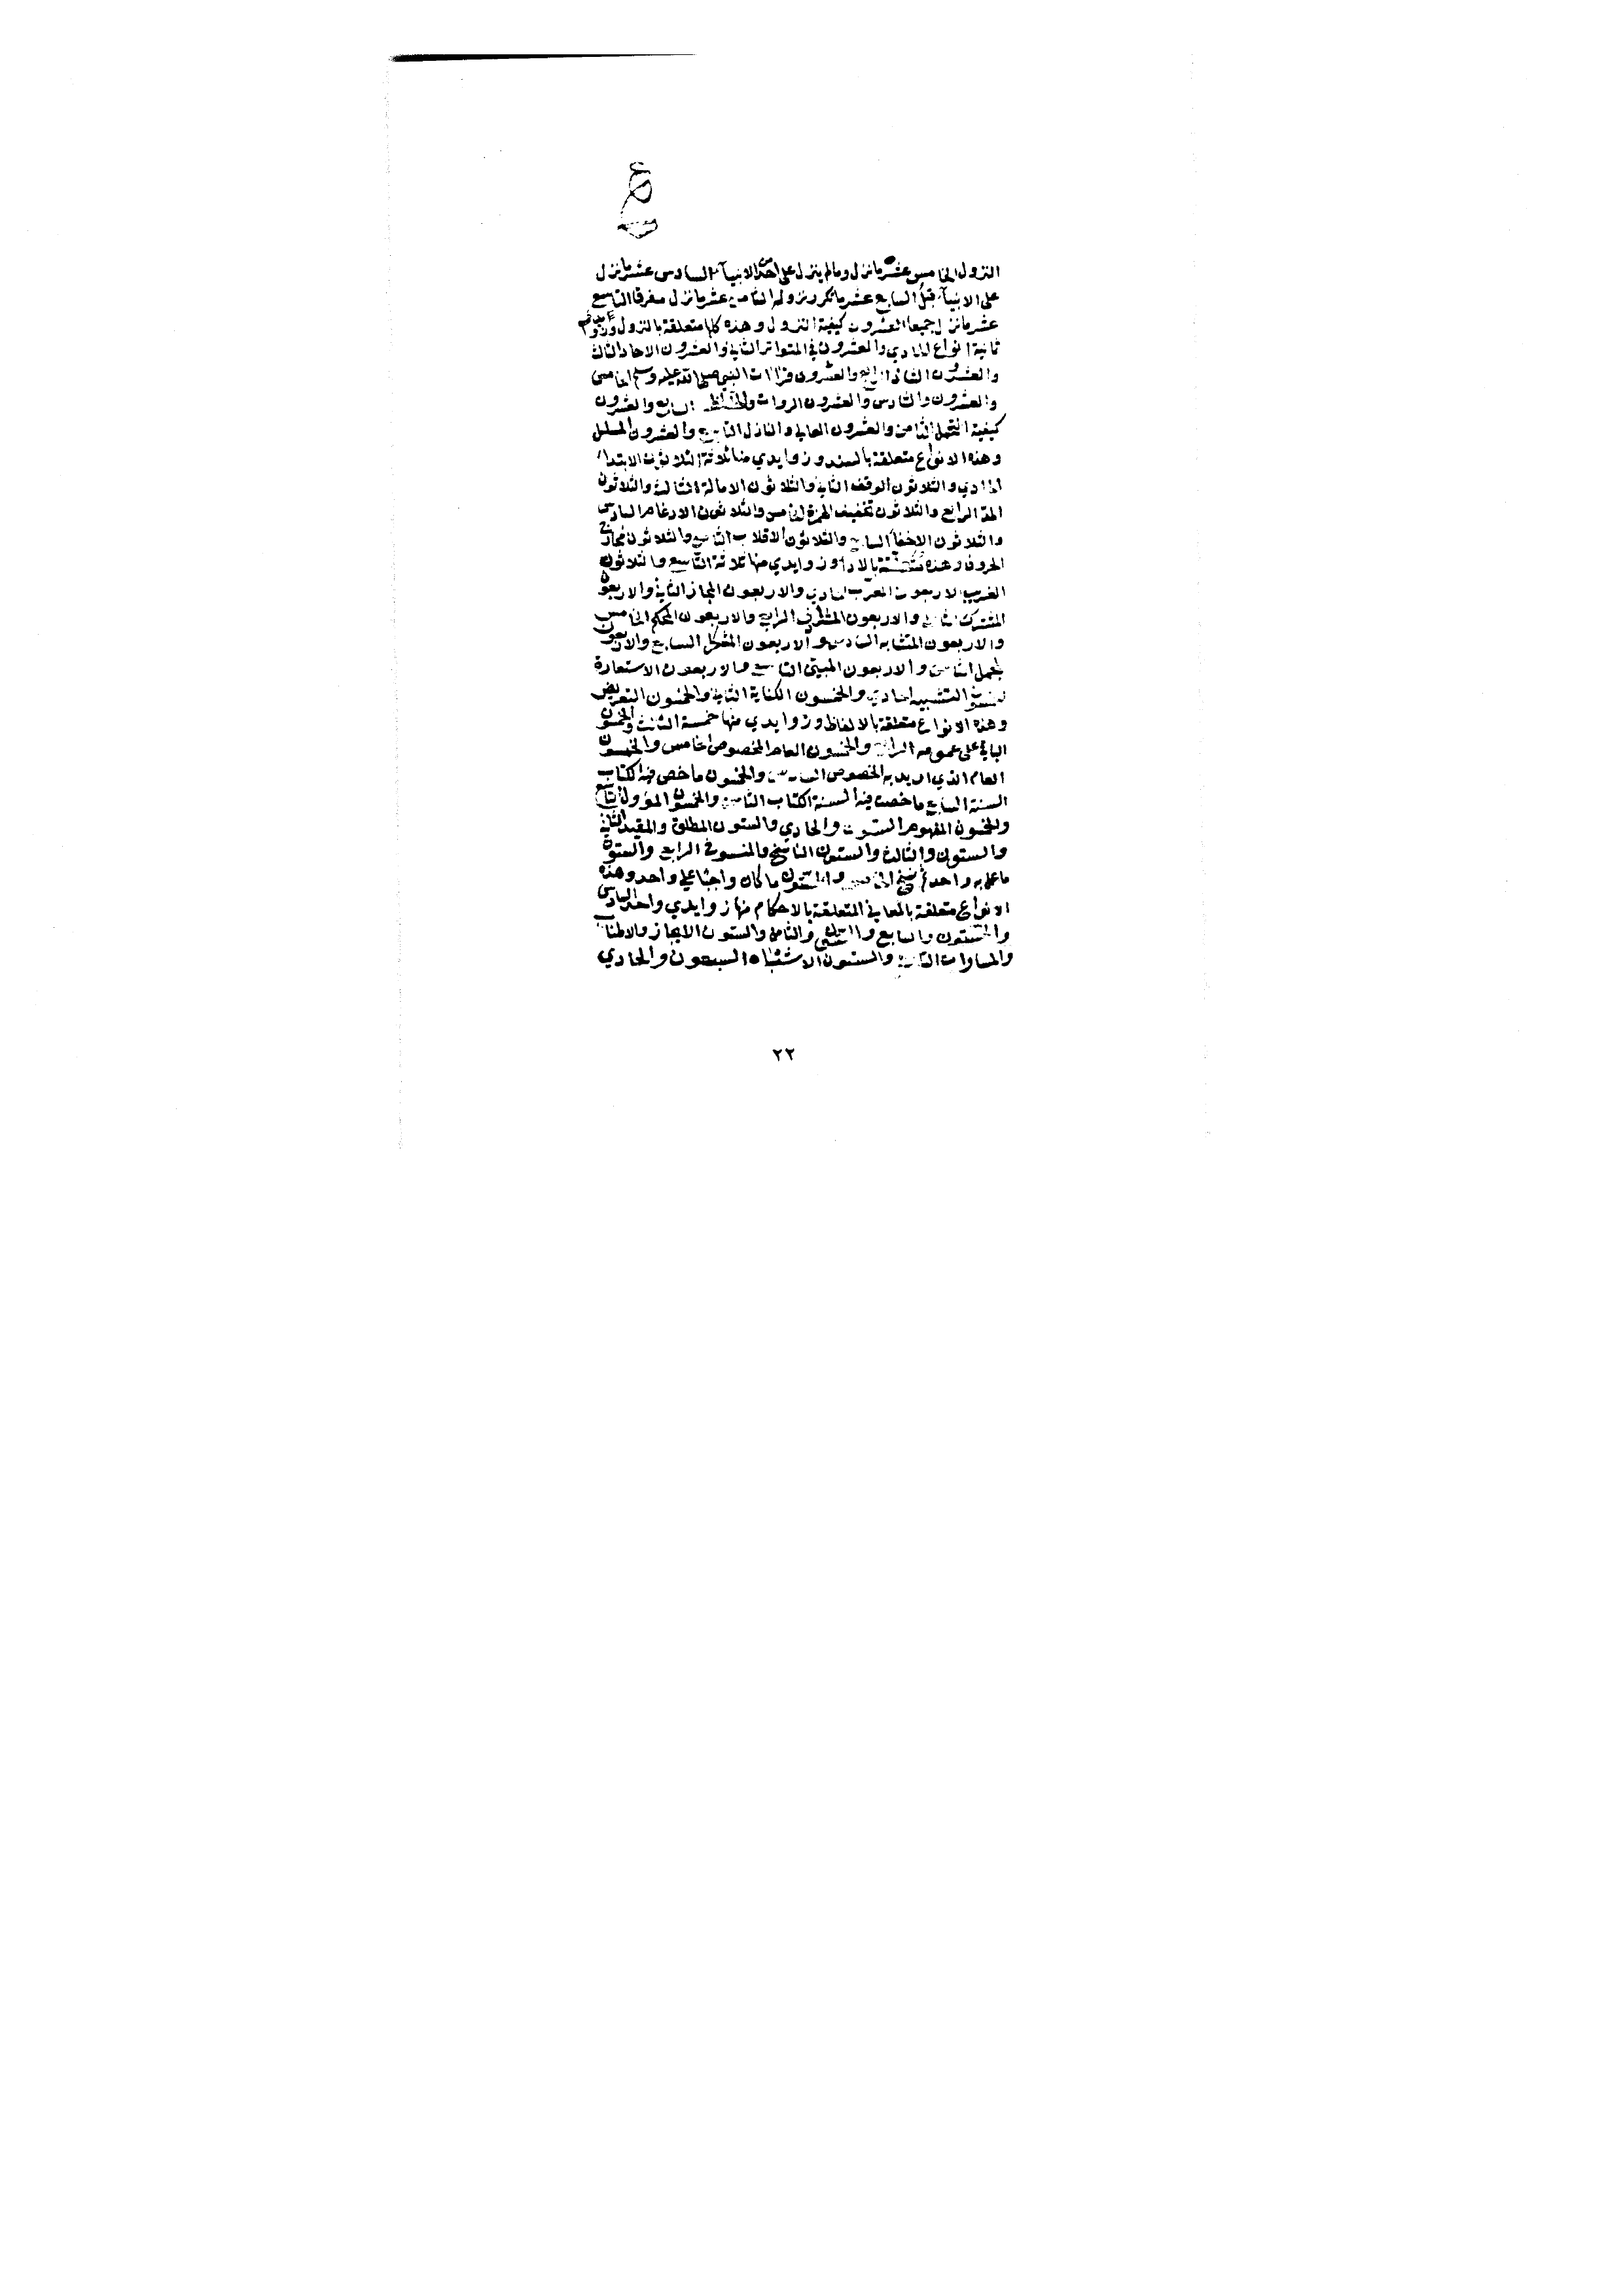 النزول الخامس عشر ما نزل وما لم ينزل على احد من الانبيآء السادس عشر ما نزل
على الانبيآء قبل السابع عشر ما تكرر نزوله الثامن عشر ما نزل مفرقا التاسع
عشر ما نزل جميعا العشرون كيفية النزول وهذه كلها متعلقة بالنزول
ثمانية انواع الحادي والعشرون في المتواتر الثاني والعشرون الاحاد الثالث
والعشرون الشاذ الرابع والعشرون قراات النبي صلى الله عليه وسلم الخامس
والعشرون والسادس والعشرون الروات والحفاظ السابع والعشرون
كيفية التحمل الثامن والعشرون العالي والنازل التاسع والعشرون المسلسل
وهذه الانواع متعلقة بالسند وزوايدي منها ثلاثة الثلاثون الابتداء
الحادي والثلاثون الوقف الثاني والثلاثون الامالة الثالث والثلاثون
المد الرابع والثلاثون تخفيف الهمزة الخامس والثلاثون الادغام السادس
والثلاثون الاخفآء السابع والثلاثون الاقلاب الثامن والثلاثون مخارج
الحروف وهذه متعلقة بالادآء وزوايدي منها ثلاثة التاسع والثلاثون
الغريب الاربعون المعرب الحادي والاربعون المجاز الثاني والاربعون
المشترك الثالث والاربعون المترادف الرابع والاربعون المحكم الخامس
والاربعون المتشابه السادس والاربعون المشكل السابع والاربعون
المجمل الثامن والاربعون المبين التاسع والاربعون الاستعارة
الخمسون التشبيه الحادي والخمسون الكناية الثاني والخمسون التعريض
وهذه الانواع متعلقة بالالفاظ وزوايدي منها خمسة الثالث والخمسون
الباقي على عمومه الرابع والخمسون العام المخصوص الخامس والخمسون
العام الذي اريد به الخصوص السادس والخمسون ما خص فيه الكتاب
السنة السابع ما خصت فيه السنة الكتاب الثامن والخمسون المؤول التاسع
والخمسون المفهوم الستون والحادي والستون المطلق والمقيد الثاني
والستون والثالث والستون الناسخ والمنسوخ الرابع والستون
ما عمل به واحد ثم نسخ الخامس والستون ما كان واجبا على واحد وهذه
الانواع متعلقة بالمعاني المتعلقة بالاحكام منها زوايدي واحد السادس
والستون والسابع والستون والثامن والستون الايجاز والاطناب
والمساوات التاسع والستون الاشتباه السبعون والحادي
٢٢